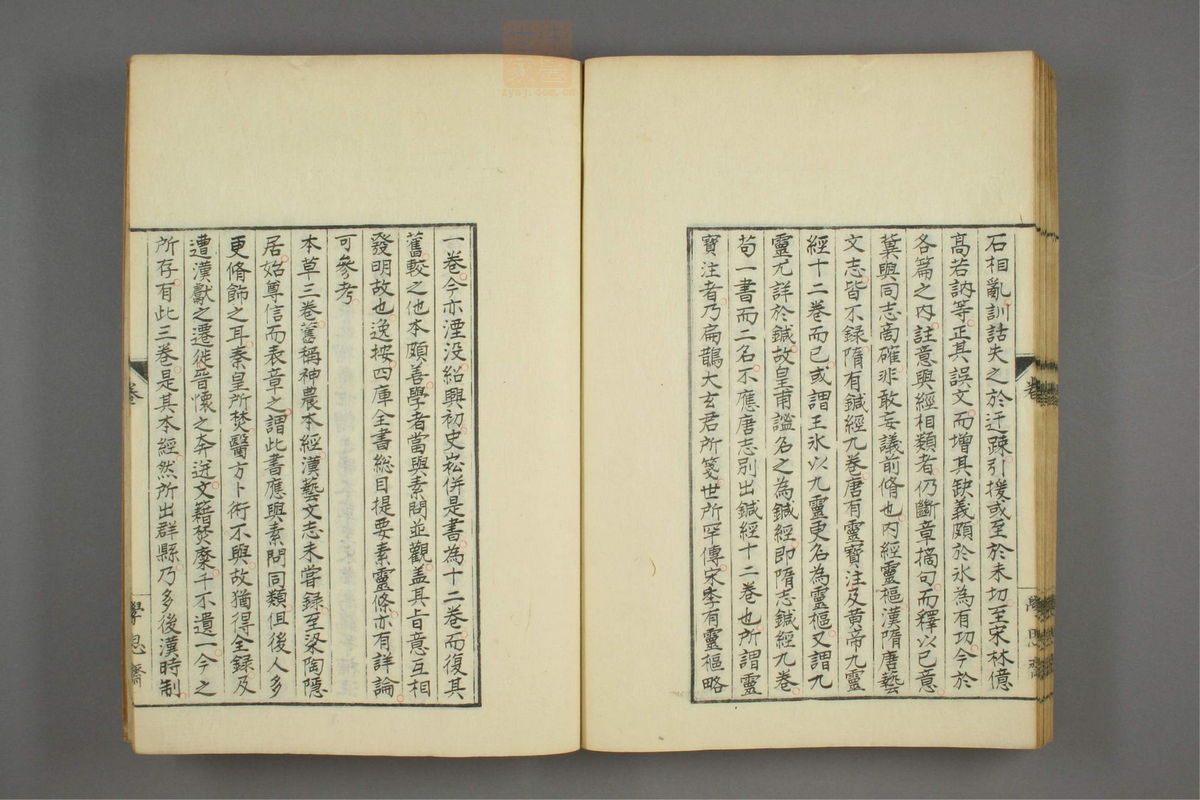 石相亂訓詁失之於迂疎引援或至於未切至宋林億
高若訥等正其誤文而增其缺義頗於氷為有功今於
各篇之内註意與經相類者仍斷章摘句而釋以已意
蕢與同志啇確非敢妄議前脩也内經靈樞漢隋唐藝
文志皆不錄隋有鍼經九卷唐有靈寶注及黄帝九靈
經十二卷而已或謂王氷以九靈更名為靈樞又謂九
靈尤詳於鍼故皇甫謐名之為鍼經即隋志鍼經九卷
苟一書而二名不應唐志别出鍼經十二卷也所謂靈
寶注者乃扁鵲大玄君所箋世所罕傳宋季有靈樞略
一卷今亦湮没紹興初史崧併是書為十二卷而復其
舊較之他本頗善學者當與素問並觀盖其旨意互相
發明故也逸按四庫全書總目提要素靈條亦有詳論
可參考
本草三卷舊稱神農本經漢藝文志未嘗録至梁陶隱
居始尊信而表章之謂此書應與素問同類但後人多
更脩飾之耳秦皇所焚醫方卜術不與故猶得全録及
遭漢獻之遷徙晉懷之奔迸文籍焚糜千不遺一今之
所存有此三卷是其本經然所出群縣乃多後漢時制
卷
學思齋